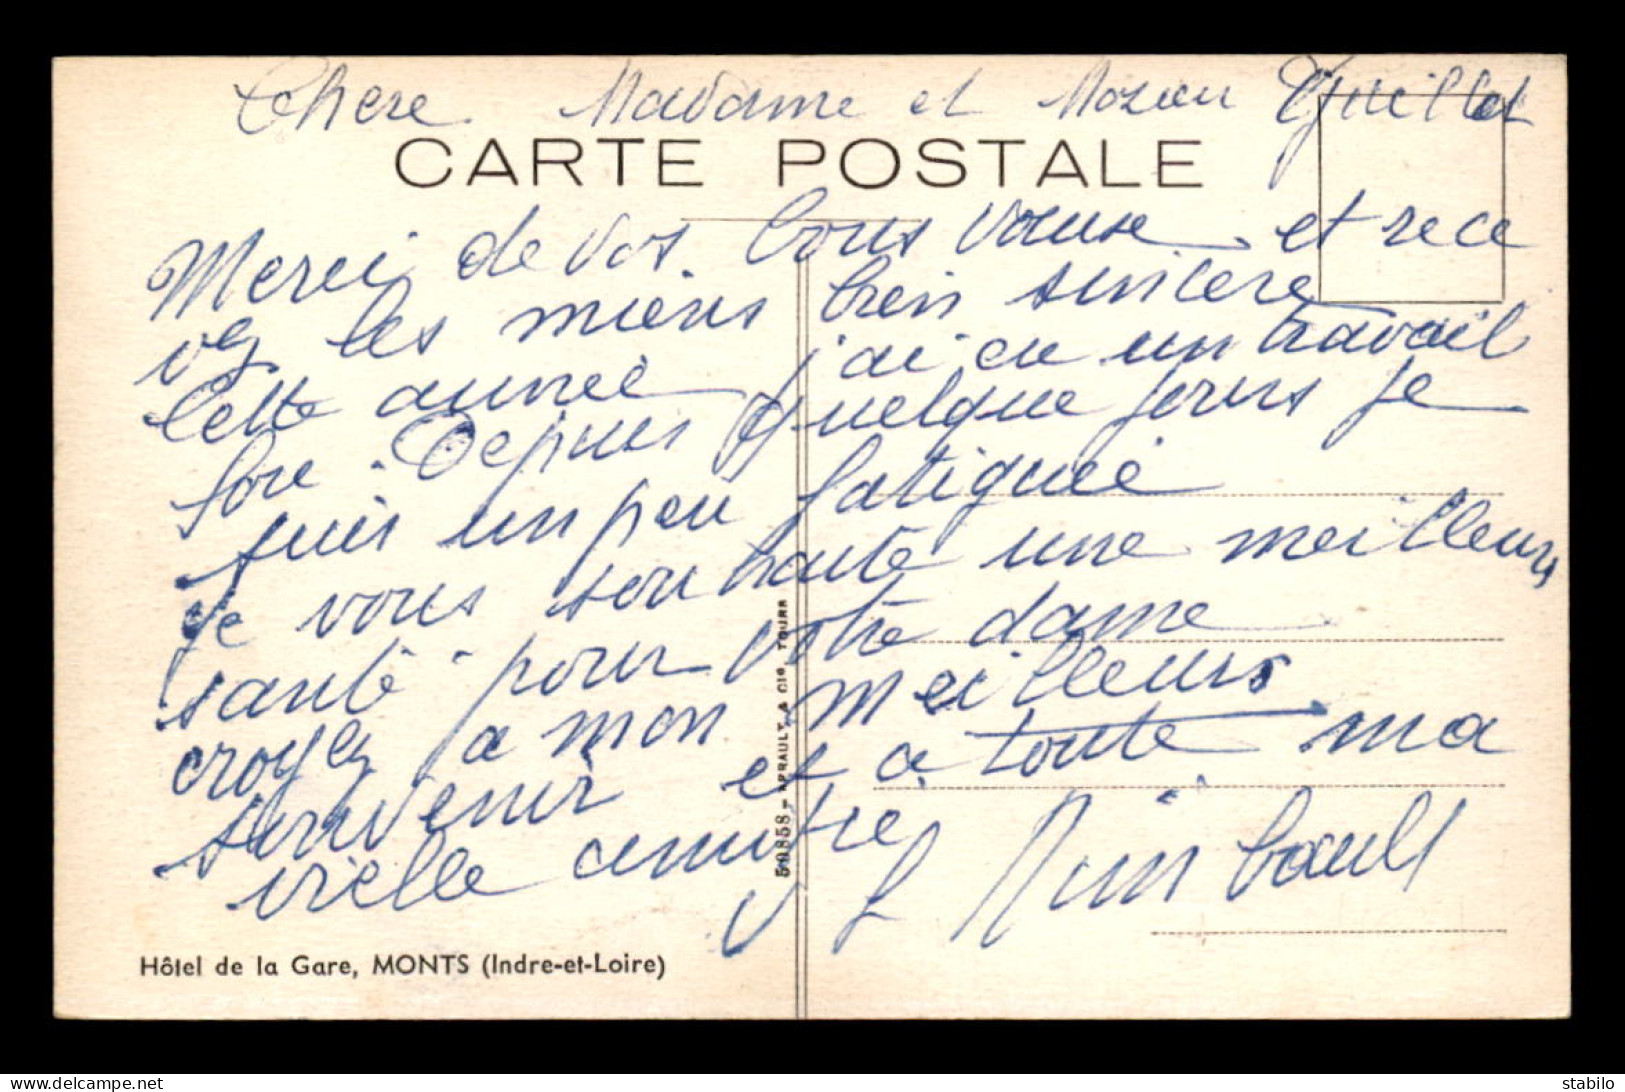 Chere Madame et Mosieu Guillot
CARTE POSTALE
Merci de vos bons vause et rece
vez les miens bien sincere
Cette année j'ai eu un travail
fore. Depuis quelque jours je
suis un peu fatiguée
je vous souhaite une meilleurs
santé pour votre dame
croyez a mon meilleurs
souvenir et a toute ma
vielle amitre
50858 - ARRAULT & Cie TOURS
Hôtel de la Gare, MONTS (Indre-et-Loire)
stabilo